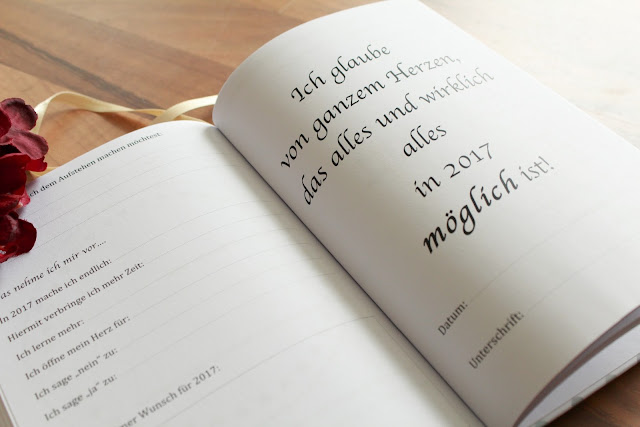 ch dem Aufstehen machen möchtest:
as nehme ich mir vor....
In 2017 mache ich endlich:
Hiermit verbringe ich mehr Zeit:
Ich lerne mehr:
Ich öffne mein Herz für:
Ich sage „nein“ zu:
Ich sage „ja“ zu:
mer Wunsch für 2017:
Ich glaube
von ganzem Herzen,
das alles und wirklich
alles
in 2017
möglich ist!
Datum:
Unterschrift: